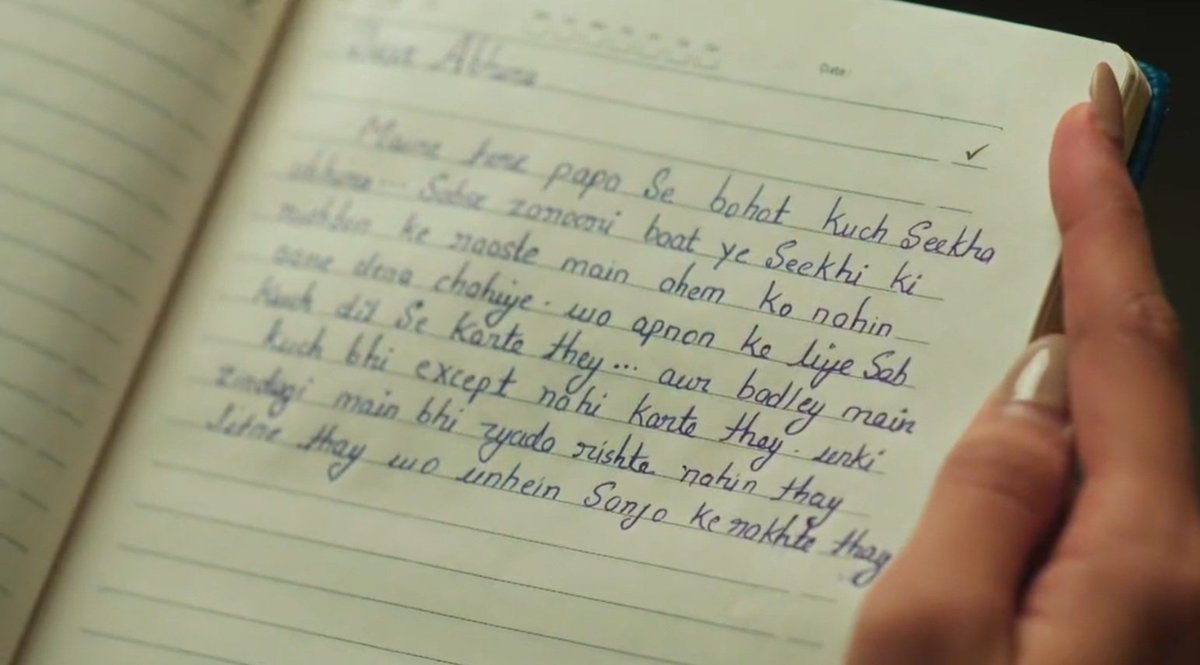 Date:
Dear Abhira
Maine tere papa se bohot kuch Seekha
abhira... Sabse zaroori baat ye Seekhi ki
rishton ke raaste main ahem ko nahin
aane dena chahiye. wo apnon ke liye Sab
kuch dil Se karte they... aur badley mein
kuch bhi except nahi karte they. unki
zindagi main bhi zyada rishte nahin thay
Jitne thay wo unhein Sanjo ke rakhte thay